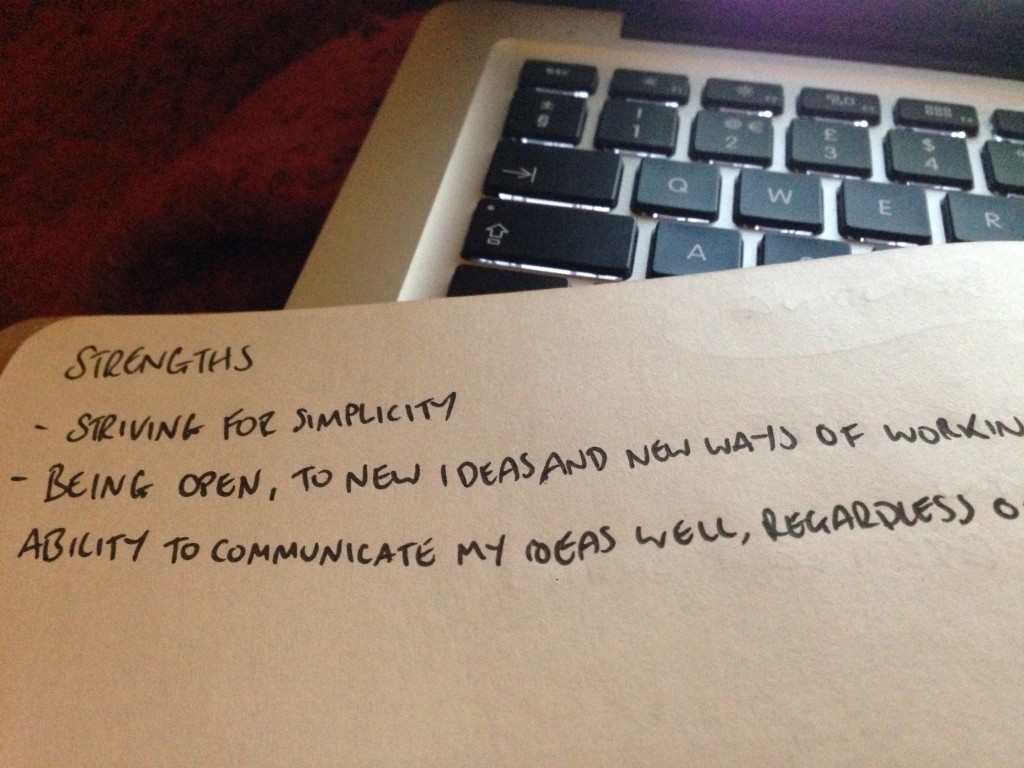 esc
± ! @ € £ $
§ 1 2 3 4
Q W E R
A
STRENGTHS
- STRIVING FOR SIMPLICITY
- BEING OPEN, TO NEW IDEAS AND NEW WAYS OF WORKIN
ABILITY TO COMMUNICATE MY IDEAS WELL, REGARDLESS O